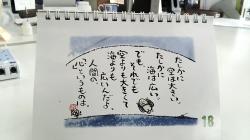 たしかに
空は大きい。
たしかに
海は広い。
でも、それでも
空よりも大きくて
海よりも
広いんだよ
人間の
心というものは。
18